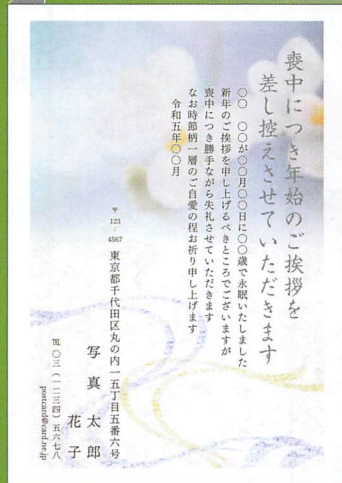 喪中につき年始のご挨拶を
差し控えさせていただきます
〇〇　〇〇が〇〇月〇〇日に〇〇歳で永眠いたしました
新年のご挨拶を申し上げるべきところでございますが
喪中につき勝手ながら失礼させていただきます
なお時節柄一層のご自愛の程お祈り申し上げます
令和五年〇〇月
〒123-4567 東京都千代田区丸の内一五丁目五番六号
写真太郎
花子
℡〇三（一二三四）五六七八
postcard@card.ne.jp